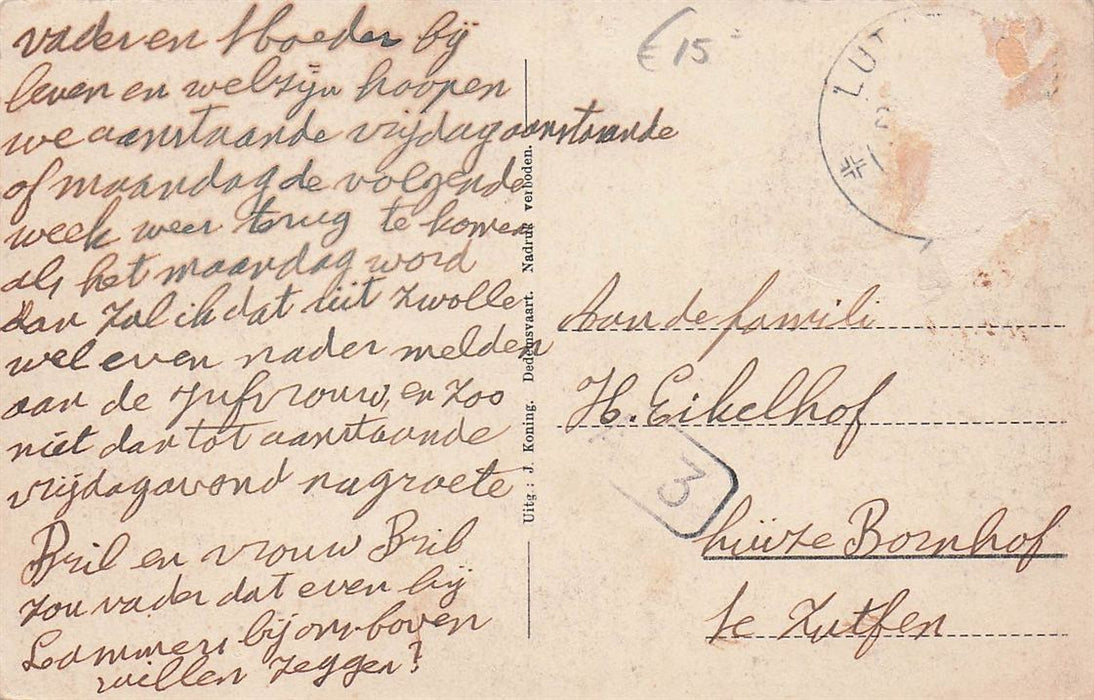 vader en Moeder bij
leven en welzijn hoopen
we aanstaande vrijdag aanstaande
of maandag de volgende
week weer terug te komen
als het maandag word
dan zal ik dat uit Zwolle
wel even nader melden
aan de Jufvrouw, en zoo
niet dan tot aanstaande
vrijdagavond na groete
Bril en vrouw Bril
zou vader dat even bij
Lammers bij ons boven
willen zeggen?
Uitg: J. Koning. Dedemsvaart. Nadruk verboden.
€ 15
LUT
Aan de famili
H. Eikelhof
3
huize Bornhof
te Zutfen